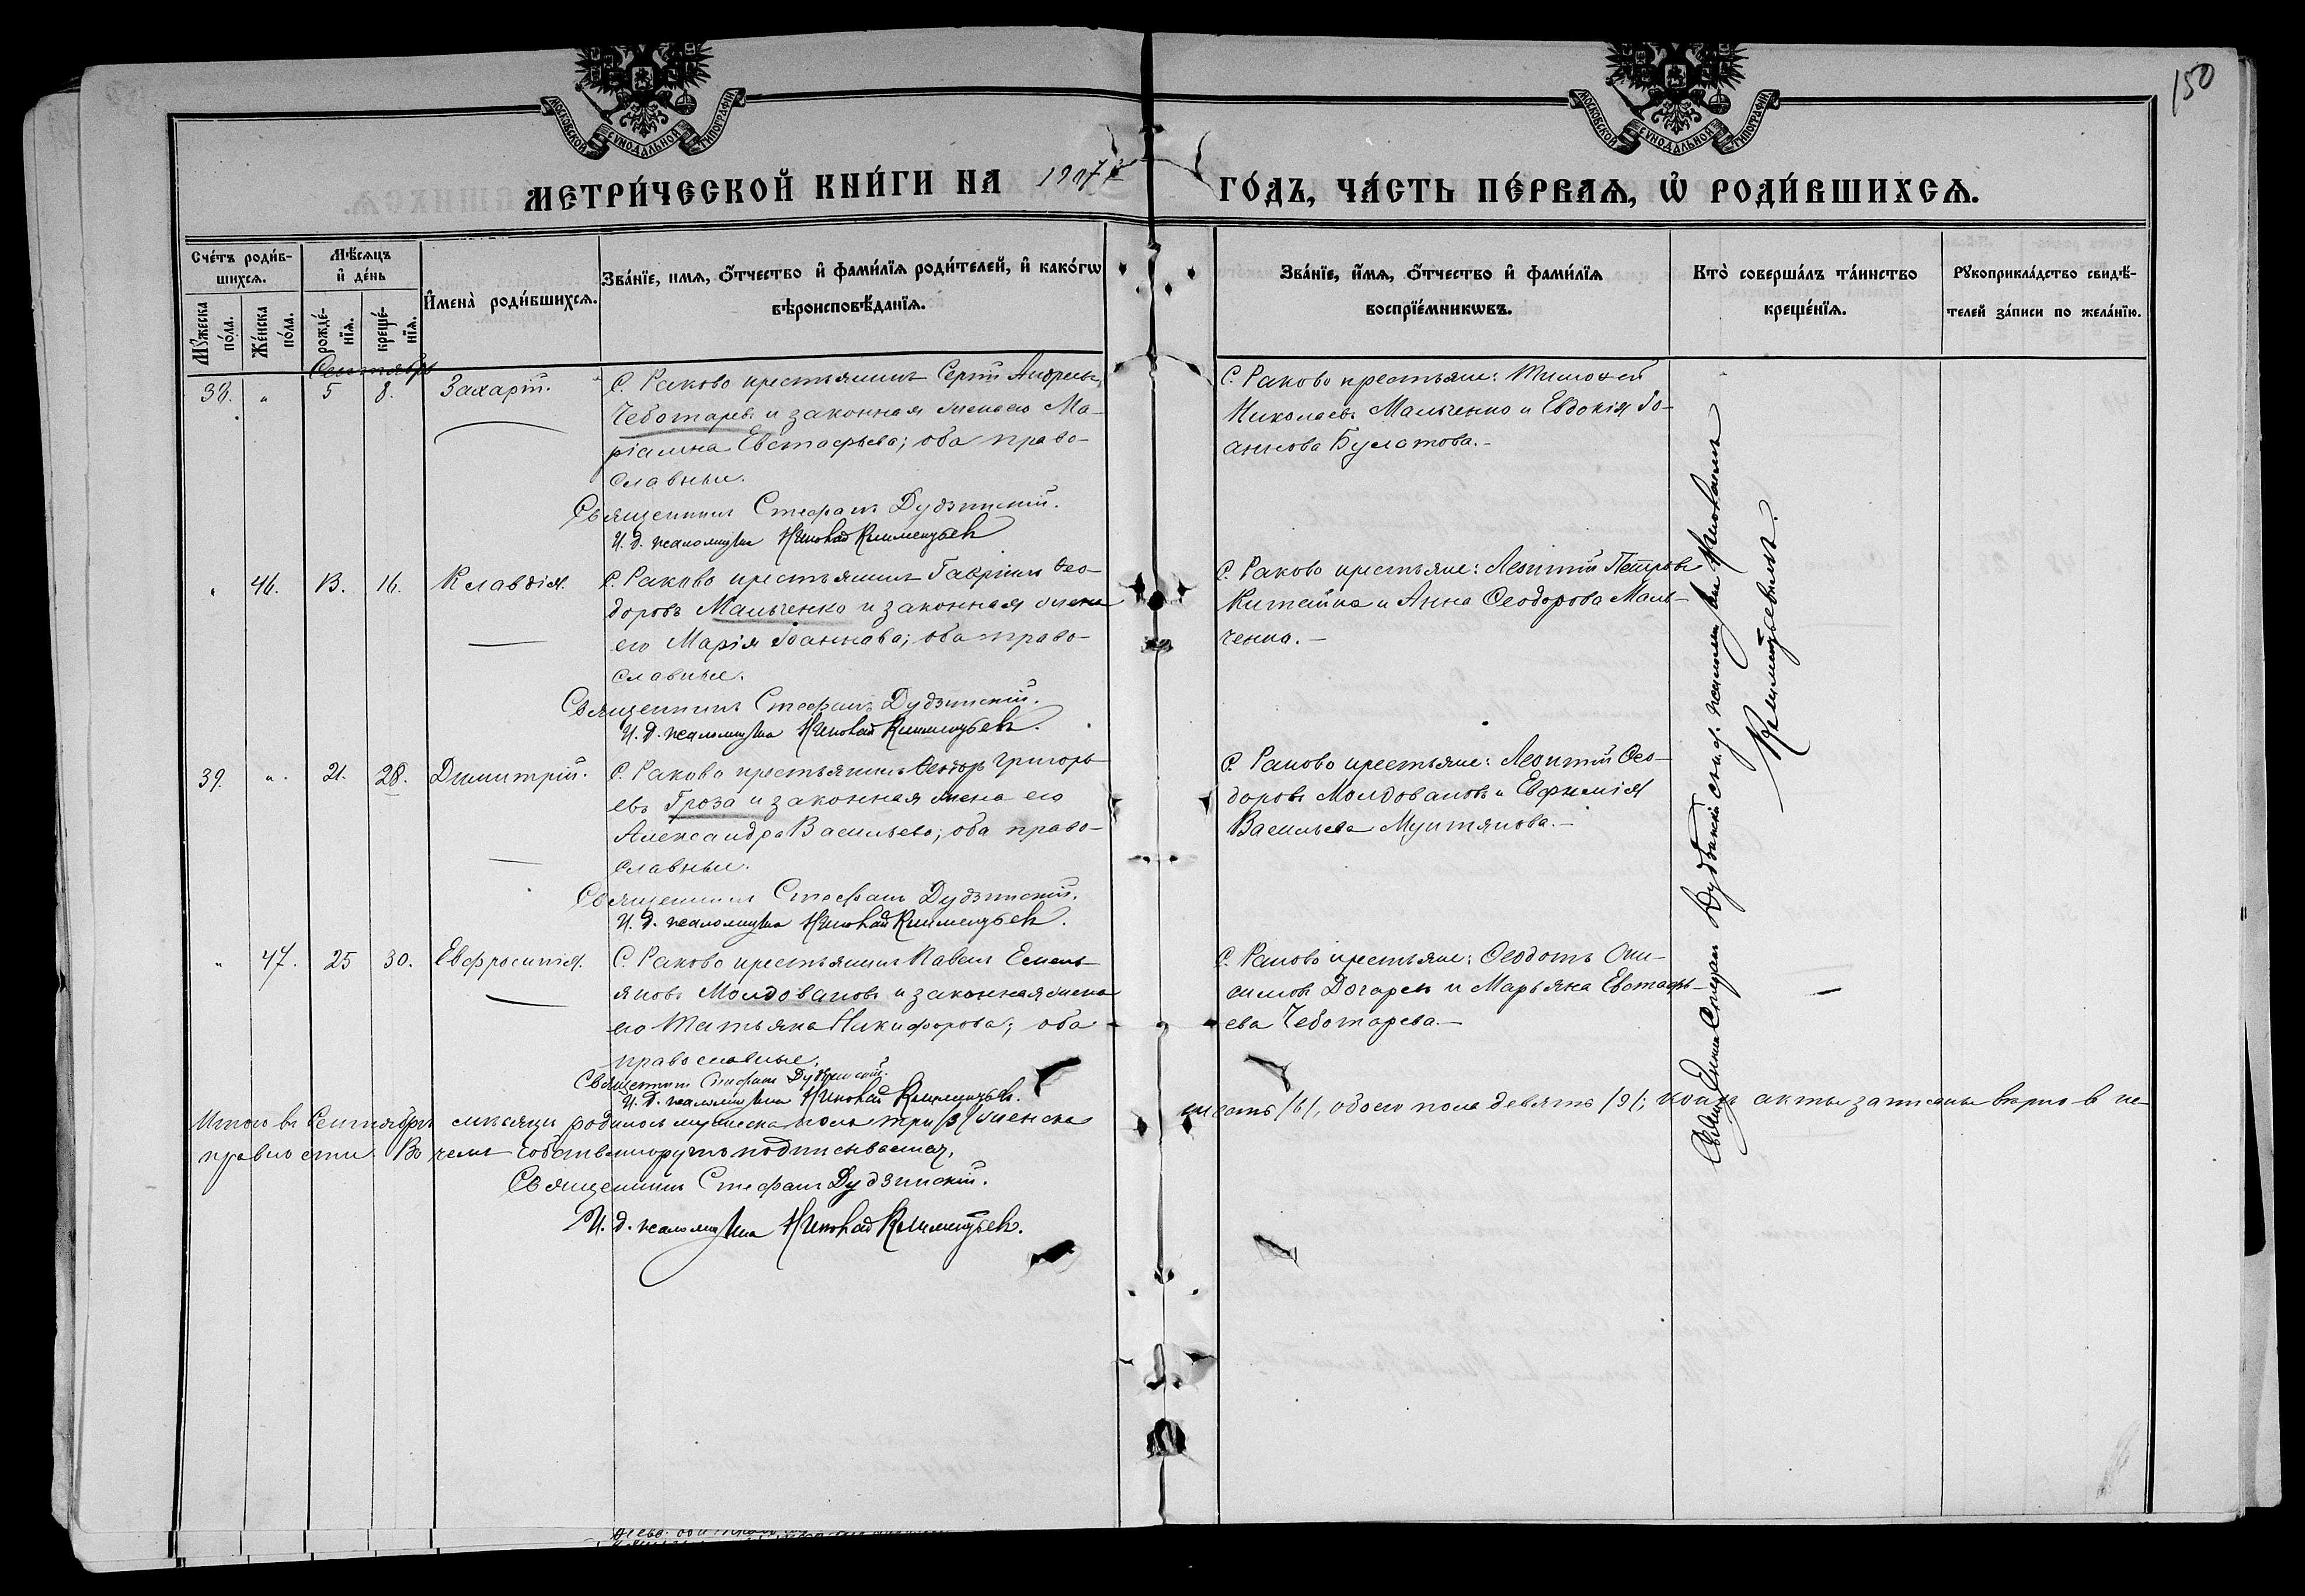 150
МОСКОВСКОЙ СѴНОДАЛЬНОЙ ТИПОГРАФІИ
МОСКОВСКОЙ СѴНОДАЛЬНОЙ ТИПОГРАФІИ
МЕТРИ́ЧЕСКОЙ КНИ́ГИ НА 1907
ГО́ДЪ, ЧА́СТЬ ПЕ́РВАѦ, Ѡ҆ РОДИ́ВШИХСѦ.
Сче́тъ роди́в-
шихсѧ.
Мꙋ́жеска по́ла.
Же́нска по́ла.
Мѣ́сяцъ
и҆ де́нь
рожде́-
нїѧ.
креще́-
нїѧ.
И҆мена̀ роди́вшихсѧ.
Зва́нїе, имѧ, ѻ҆́тчество и҆ фами́лїѧ роди́телей, и҆ како́гѡ
вѣроисповѣ́данїѧ.
Зва́нїе, и҆́мѧ, ѻ҆́тчество и҆ фами́лїѧ
воспрїе́мникѡвъ.
Кто̀ соверша́лъ та́инство
креще́нїѧ.
Рꙋкоприкла́дство свидѣ́-
телей за́писи по жела́нїю.
Сентябрь
38. " 5 8. Захарій.
С. Раково крестьянинъ Сергій Андреевъ
Чеботаревъ и законная жена его Ма-
ріамна Евстафьева; оба право-
славные.
Священникъ Стефанъ Дудзинскій.
И. д. псаломщика Николай Климентьевъ
С. Раково крестьяне: Тимофей
Николаевъ Мальченко и Евдокія Іо-
аннова Булатова.-
" 46. 13. 16. Клавдія.
С. Раково крестьянинъ Гавріилъ Ѳео-
доровъ Мальченко и законная жена
его Марія Іоаннова; оба право-
славные.
Священникъ Стефанъ Дудзинскій.
И. д. псаломщика Николай Климентьевъ.
С. Раково крестьяне: Леонтій Петровъ
Китайка и Анна Ѳеодорова Маль-
ченко.-
39. ". 21. 28. Димитрій.
С. Раково крестьянинъ Ѳеодоръ Григорь-
евъ Гроза и законная жена его
Александра Васильева; оба право-
славные.
Священникъ Стефанъ Дудзинскій.
И. д. псаломщика Николай Климентьевъ.
С. Раково крестьяне: Леонтій Ѳео-
доровъ Молдовановъ и Евфимія
Васильева Мунтянова.-
" 47. 25 30. Евфросинія.
С. Раково крестьянинъ Павелъ Емель-
яновъ Молдовановъ и законная жена
его Татьяна Никифорова; оба
православные.
Священникъ Стефанъ Дудзинскій.
И. д. псаломщика Николай Климентьевъ.
С. Раково крестьяне: Ѳеодотъ Они-
симовъ Догаревъ и Марьяна Евстафь-
ева Чеботарева.-
Священникъ Стефанъ Дудзинскій съ и. д. псаломщика Николаемъ
Климентьевымъ.
Итого въ Сентябрѣ мѣсяцѣ родилось мужеска пола три /3/ женска шесть /6/, обоего пола девять /9/; коихъ акты записаны вѣрно въ ис-
правности. Въ чемъ собственноручно подписываемся,
Священникъ Стефанъ Дудзинскій.
И. д. псаломщика Николай Климентьевъ.